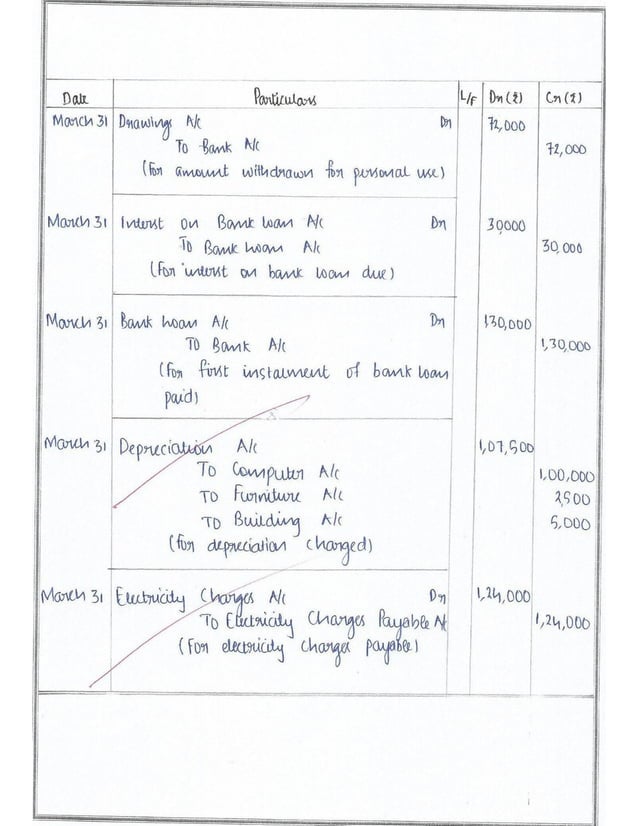 Date Particulars L/F Dr (₹) Cr (₹)
March 31 Drawings A/c Dr 72,000
To Bank A/c 72,000
(For amount withdrawn for personal use)
March 31 Interst on Bank loan A/c Dr 30000
To Bank loan A/c 30,000
(For interst on bank loan due)
March 31 Bank loan A/c Dr 130,000
To Bank A/c 1,30,000
(For first instalment of bank loan
paid)
March 31 Depreciation A/c 1,07,500
To Computer A/c 1,00,000
To Furniture A/c 2,500
To Building A/c 5,000
(for depreciation charged)
March 31 Electricity Charges A/c Dr 1,24,000
To Electricity Charges Payable A/c 1,24,000
(For electricity charges payable)